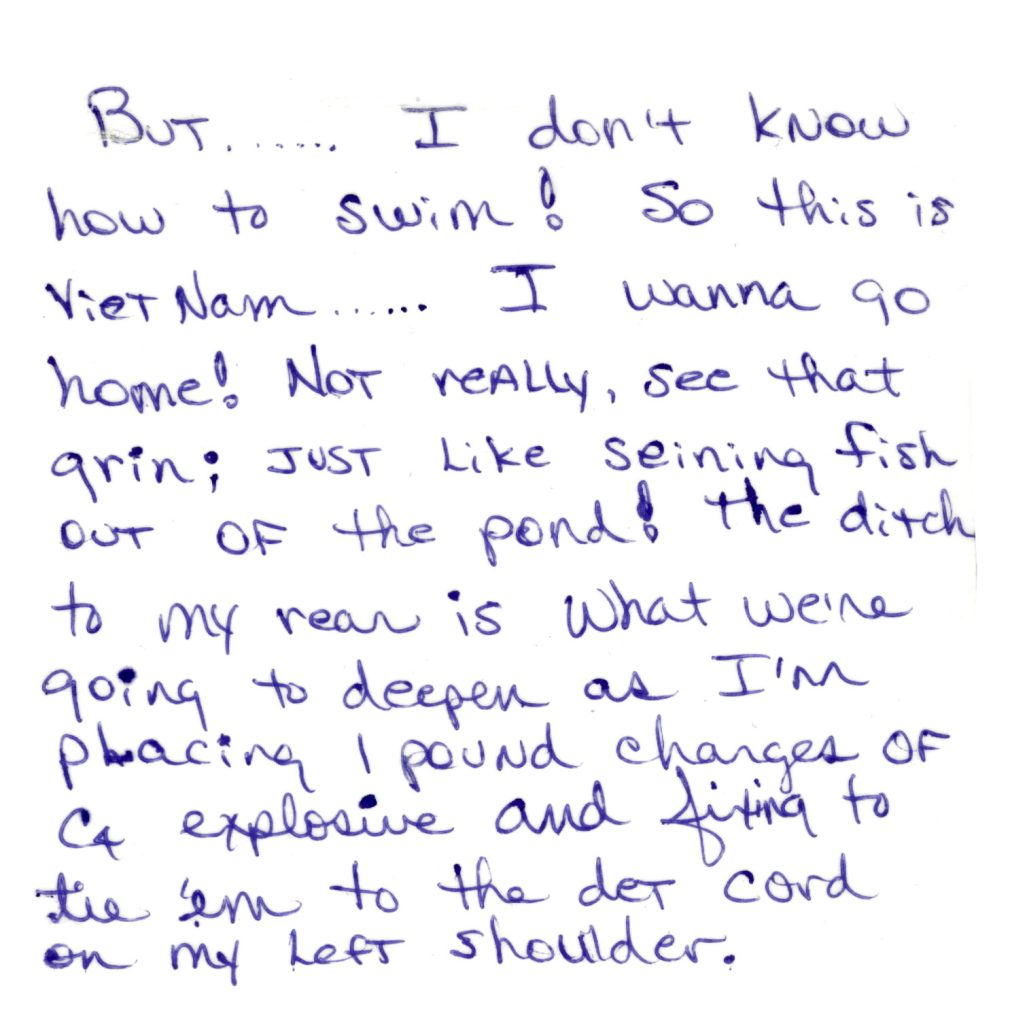 But....... I don't know
how to swim! So this is
Viet Nam...... I wanna go
home! Not really, see that
grin; just like seining fish
out of the pond! The ditch
to my rear is what we're
going to deepen as I'm
placing 1 pound charges of
C4 explosive and fixing to
tie 'em to the det cord
on my left shoulder.